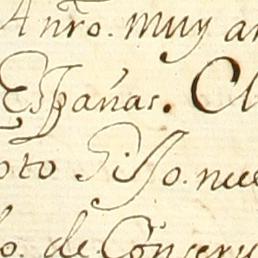 Anro. muy
Españas. Cl
pto Sr. Jo. nue
o. de Conseru